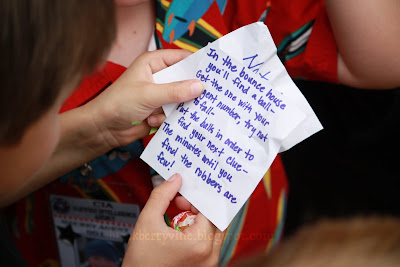 In the bounce house
you'll find a ball-
Got the one with your
agent number, try not
to fall-
Put the balls in order to
find your next clue-
The minutes until you
find the robbers are
few!
CIA
bertyvine.blogspot.com